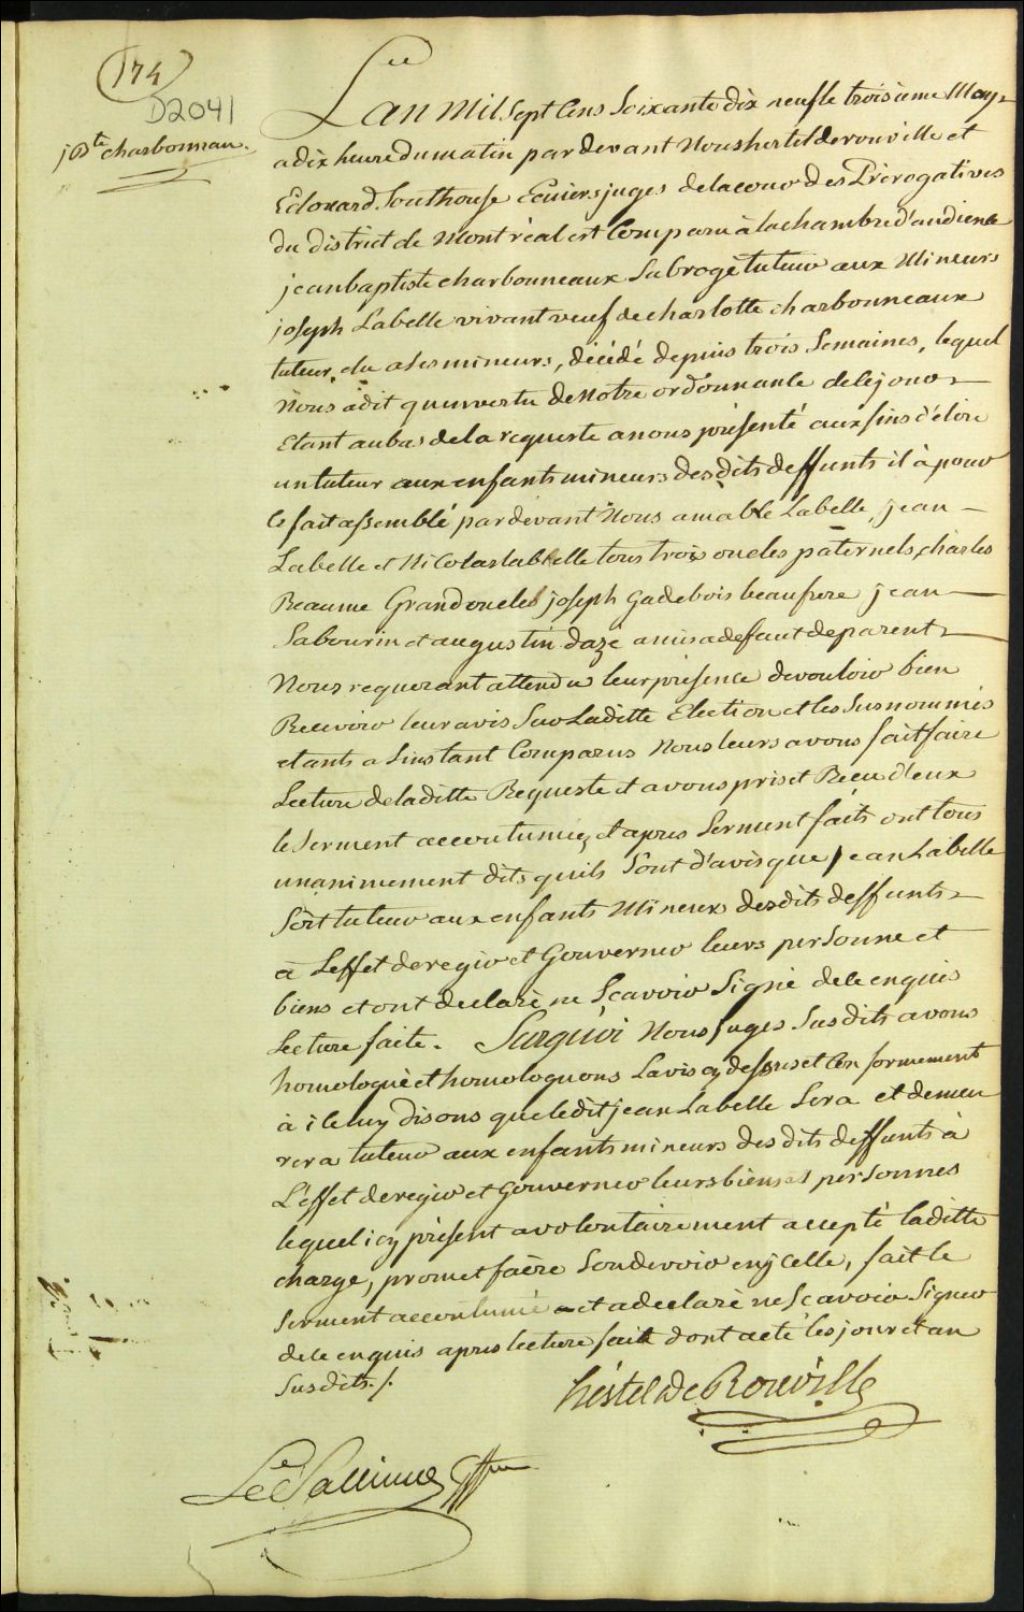 174
D2041
jBte charbonnau.
Lan Mil Sept Cens Soixante dix neuf le troisième May
a dix heure du matin par devant Nous hertel de rouville et
Edouard Southouse Ecuiers juges de la cour des Prérogatives
du district de Montréal est Comparu à la chambre d'audience
jean baptiste charbonneaux Subrogé tuteur aux Mineurs
joseph Labelle vivant veuf de charlotte charbonneaux
tuteur élu a ses mineurs, décédé depuis trois Semaines, lequel
Nous a dit qu'en vertu de Notre ordonnance de ce jour
Etant au bas de la requeste a nous présenté aux fins d'élire
un tuteur aux enfants mineurs des dits deffunts il à pour
ce fait assemblé par devant Nous amable Labelle, jean
Labelle et Nicolas labelle tous trois oncles paternels, charles
Beaume Grand oncles joseph Gadebois beaufrere jean
Sabourin et augustin dazé amis a defaut de parent
Nous requerant attendu leur présence de vouloir bien
Recevoir leur avis Sur Laditte Election et les Susnommés
etants a Linstant Comparus Nous leurs avons fait faire
Lecture de laditte Requeste et avons pris et Recu d'eux
le Serment accoutumiez et apres Serment faits ont tous
unanimement dits quils Sont d'avis que jean Labelle
Soit tuteur aux enfants Mineurs desdits deffunts
à Leffet de regir et Gouverner leurs personne et
biens et ont declaré ne Sçavoir Signé de ce enquis
Lecture faite. Surquoi Nous juges Susdits avons
homologué et homologuons Lavis cy dessus et Conformement
à iceluy disons que ledit jean Labelle Sera et demeu
rera tuteur aux enfants mineurs des dits deffunts à
L'effet de regir et Gouverner leurs biens et personnes
lequel icy présent a volontairement accepté laditte
charge, promet faire Son devoir en ycelle, fait le
Serment accoutumé et a declaré ne Scavoir Signer
de ce enquis apres lecture faite dont acte les jour et an
Susdits ./.
hertel De Rouville